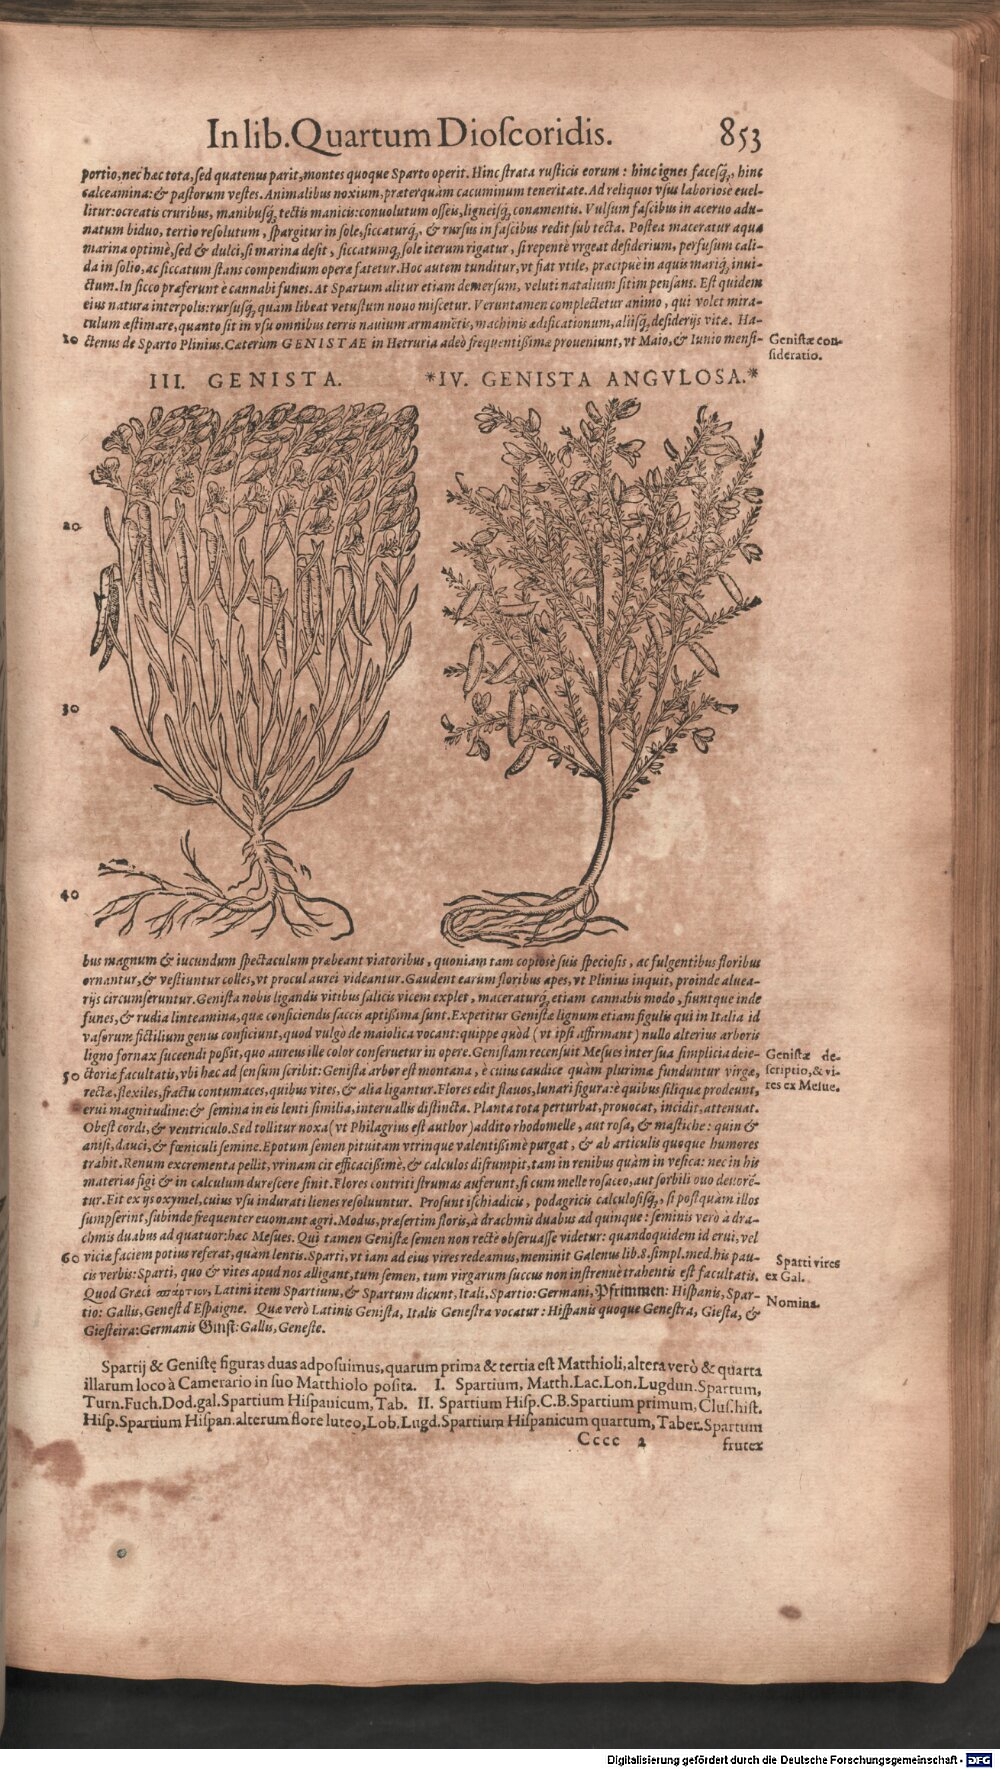 In lib. Quartum Dioſcoridis. 853
portio, nec hæc tota, ſed quatenus parit, montes quoque Sparto operit. Hinc ſtrata ruſticis eorum: hinc ignes faceſq́, hinc
calceamina: & paſtorum veſtes. Animalibus noxium, præterquàm cacuminum teneritate. Ad reliquos vſus laborioſè euel-
litur: ocreatis cruribus, manibuſq́, tectis manicis: conuolutum oſſeis, ligneiſq́, conamentis. Vulſum faſcibus in aceruo adu-
natum biduo, tertio reſolutum, ſpargitur in ſole, ſiccaturq́, & rurſus in faſcibus redit ſub tecta. Poſtea maceratur aqua
marina optimè, ſed & dulci, ſi marina deſit, ſiccatumq́, ſole iterum rigatur, ſi repentè vrgeat deſiderium, perfuſum cali-
da in ſolio, ac ſiccatum ſtans compendium operæ fatetur. Hoc autem tunditur, vt fiat vtile, præcipuè in aquis mariq́, inui-
ctum. In ſicco præferunt è cannabi funes. At Spartum alitur etiam demerſum, veluti natalium ſitim penſans. Eſt quidem
eius natura interpolis: rurſusq́, quàm libeat vetuſtum nouo miſcetur. Veruntamen complectetur animo, qui volet mira-
culum æſtimare, quanto ſit in vſu omnibus terris nauium armamētis, machinis ædificationum, aliiſq́, deſiderijs vitæ. Ha-
10 ctenus de Sparto Plinius. Cæterum GENISTAE in Hetruria adeò frequentiſſimæ proueniunt, vt Maio, & Iunio menſi-
Geniſtæ con-
ſideratio.
III. GENISTA.
*IV. GENISTA ANGVLOSA.*
20
30
40
bus magnum & iucundum ſpectaculum præbeant viatoribus, quoniam tam copioſè ſuis ſpecioſis, ac fulgentibus floribus
ornantur, & veſtiuntur colles, vt procul aurei videantur. Gaudent earum floribus apes, vt Plinius inquit, proinde aluea-
rijs circumſeruntur. Geniſta nobis ligandis vitibus ſalicis vicem explet, maceraturq́, etiam cannabis modo, fiuntque inde
funes, & rudia linteamina, quæ conficiendis ſaccis aptiſſima ſunt. Expetitur Geniſtæ lignum etiam figulis qui in Italia id
vaſorum fictilium genus conficiunt, quod vulgò de maiolica vocant: quippe quòd (vt ipſi affirmant) nullo alterius arboris
ligno fornax ſuccendi poſſit, quo aureus ille color conſeruetur in opere. Geniſtam recenſuit Meſues inter ſua ſimplicia deie-
50 ctoriæ facultatis, vbi hæc ad ſenſum ſcribit: Geniſta arbor eſt montana, è cuius caudice quàm plurimæ funduntur virgæ,
rectæ, flexiles, fractu contumaces, quibus vites, & alia ligantur. Flores edit flauos, lunari figura: è quibus ſiliquæ prodeunt,
erui magnitudine: & ſemina in eis lenti ſimilia, interuallis diſtincta. Planta tota perturbat, prouocat, incidit, attenuat.
Geniſtæ de-
ſcriptio, & vi-
res ex Meſue.
Obeſt cordi, & ventriculo. Sed tollitur noxa (vt Philagrius eſt author) addito rhodomelle, aut roſa, & maſtiche: quin &
aniſi, dauci, & fœniculi ſemine. Epotum ſemen pituitam vtrinque valentiſſimè purgat, & ab articulis quoque humores
trahit. Renum excrementa pellit, vrinam cit efficaciſſimè, & calculos diſrumpit, tam in renibus quàm in veſica: nec in his
materias figi & in calculum dureſcere ſinit. Flores contriti ſtrumas auferunt, ſi cum melle roſaceo, aut ſorbili ouo deuorē-
tur. Fit ex ijs oxymel, cuius vſu indurati lienes reſoluuntur. Proſunt iſchiadicis, podagricis calculoſiſq́, ſi poſtquàm illos
ſumpſerint, ſubinde frequenter euomant ægri. Modus, præſertim floris, à drachmis duabus ad quinque: ſeminis verò à dra-
chmis duabus ad quatuor: hæc Meſues. Qui tamen Geniſtæ ſemen non rectè obſeruaſſe videtur: quandoquidem id erui, vel
60 viciæ faciem potius referat, quàm lentis. Sparti, vt iam ad eius vires redeamus, meminit Galenus lib. 8. ſimpl. med. his pau-
cis verbis: Sparti, quo & vites apud nos alligant, tum ſemen, tum virgarum ſuccus non inſtrenuè trahentis eſt facultatis.
Sparti vires
ex Gal.
Quod Græci σπάρτιον, Latini item Spartium, & Spartum dicunt, Itali, Spartio: Germani, Pfrimmen: Hiſpanis, Spar-
tio: Gallis, Geneſt d'Eſpaigne. Quæ verò Latinis Geniſta, Italis Geneſtra vocatur: Hiſpanis quoque Geneſtra, Gieſta, &
Gieſteira: Germanis Ginſt: Gallis, Geneſte.
Nomina.
Spartij & Geniſtę figuras duas adpoſuimus, quarum prima & tertia eſt Matthioli, altera verò & quarta
illarum loco à Camerario in ſuo Matthiolo poſita. I. Spartium, Matth. Lac. Lon. Lugdun. Spartum,
Turn. Fuch. Dod. gal. Spartium Hiſpanicum, Tab. II. Spartium Hiſp. C.B. Spartium primum, Cluſ. hiſt.
Hiſp. Spartium Hiſpan. alterum flore luteo, Lob. Lugd. Spartium Hiſpanicum quartum, Taber. Spartum
Cccc 2 frutex
Digitalisierung gefördert durch die Deutsche Forschungsgemeinschaft - DFG